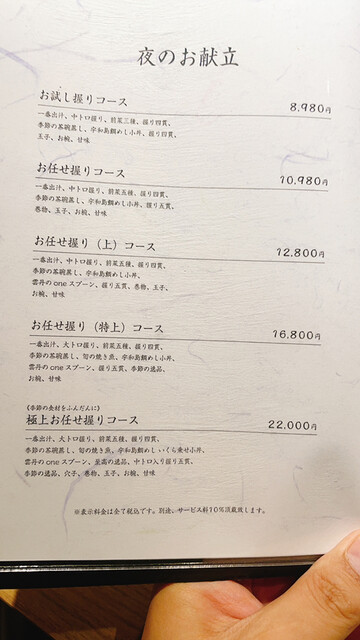 夜のお献立
お試し握りコース 8,980円
一番出汁、中トロ握り、前菜三種、握り四貫、
季節の茶碗蒸し、宇和島鯛めし小丼、握り四貫、
玉子、お椀、甘味
お任せ握りコース 10,980円
一番出汁、中トロ握り、前菜五種、握り四貫、
季節の茶碗蒸し、宇和島鯛めし小丼、握り五貫、
巻物、玉子、お椀、甘味
お任せ握り（上）コース 12,800円
一番出汁、中トロ握り、前菜五種、握り四貫、
季節の茶碗蒸し、宇和島鯛めし小丼、
雲丹のoneスプーン、握り五貫、巻物、玉子、
お椀、甘味
お任せ握り（特上）コース 16,800円
一番出汁、大トロ握り、前菜五種、握り四貫、
季節の茶碗蒸し、旬の焼き魚、宇和島鯛めし小丼、
雲丹のoneスプーン、握り五貫、季節の逸品、
お椀、甘味
(季節の食材をふんだんに)
極上お任せ握りコース 22,000円
一番出汁、大トロ握り、前菜五種、握り四貫、
季節の茶碗蒸し、旬の焼き魚、宇和島鯛めしいくら乗せ小丼、
雲丹のoneスプーン、至高の逸品、中トロ入り握り五貫、
季節の逸品、穴子、巻物、玉子、お椀、甘味
※表示料金は全て税込です。別途、サービス料10%頂戴致します。